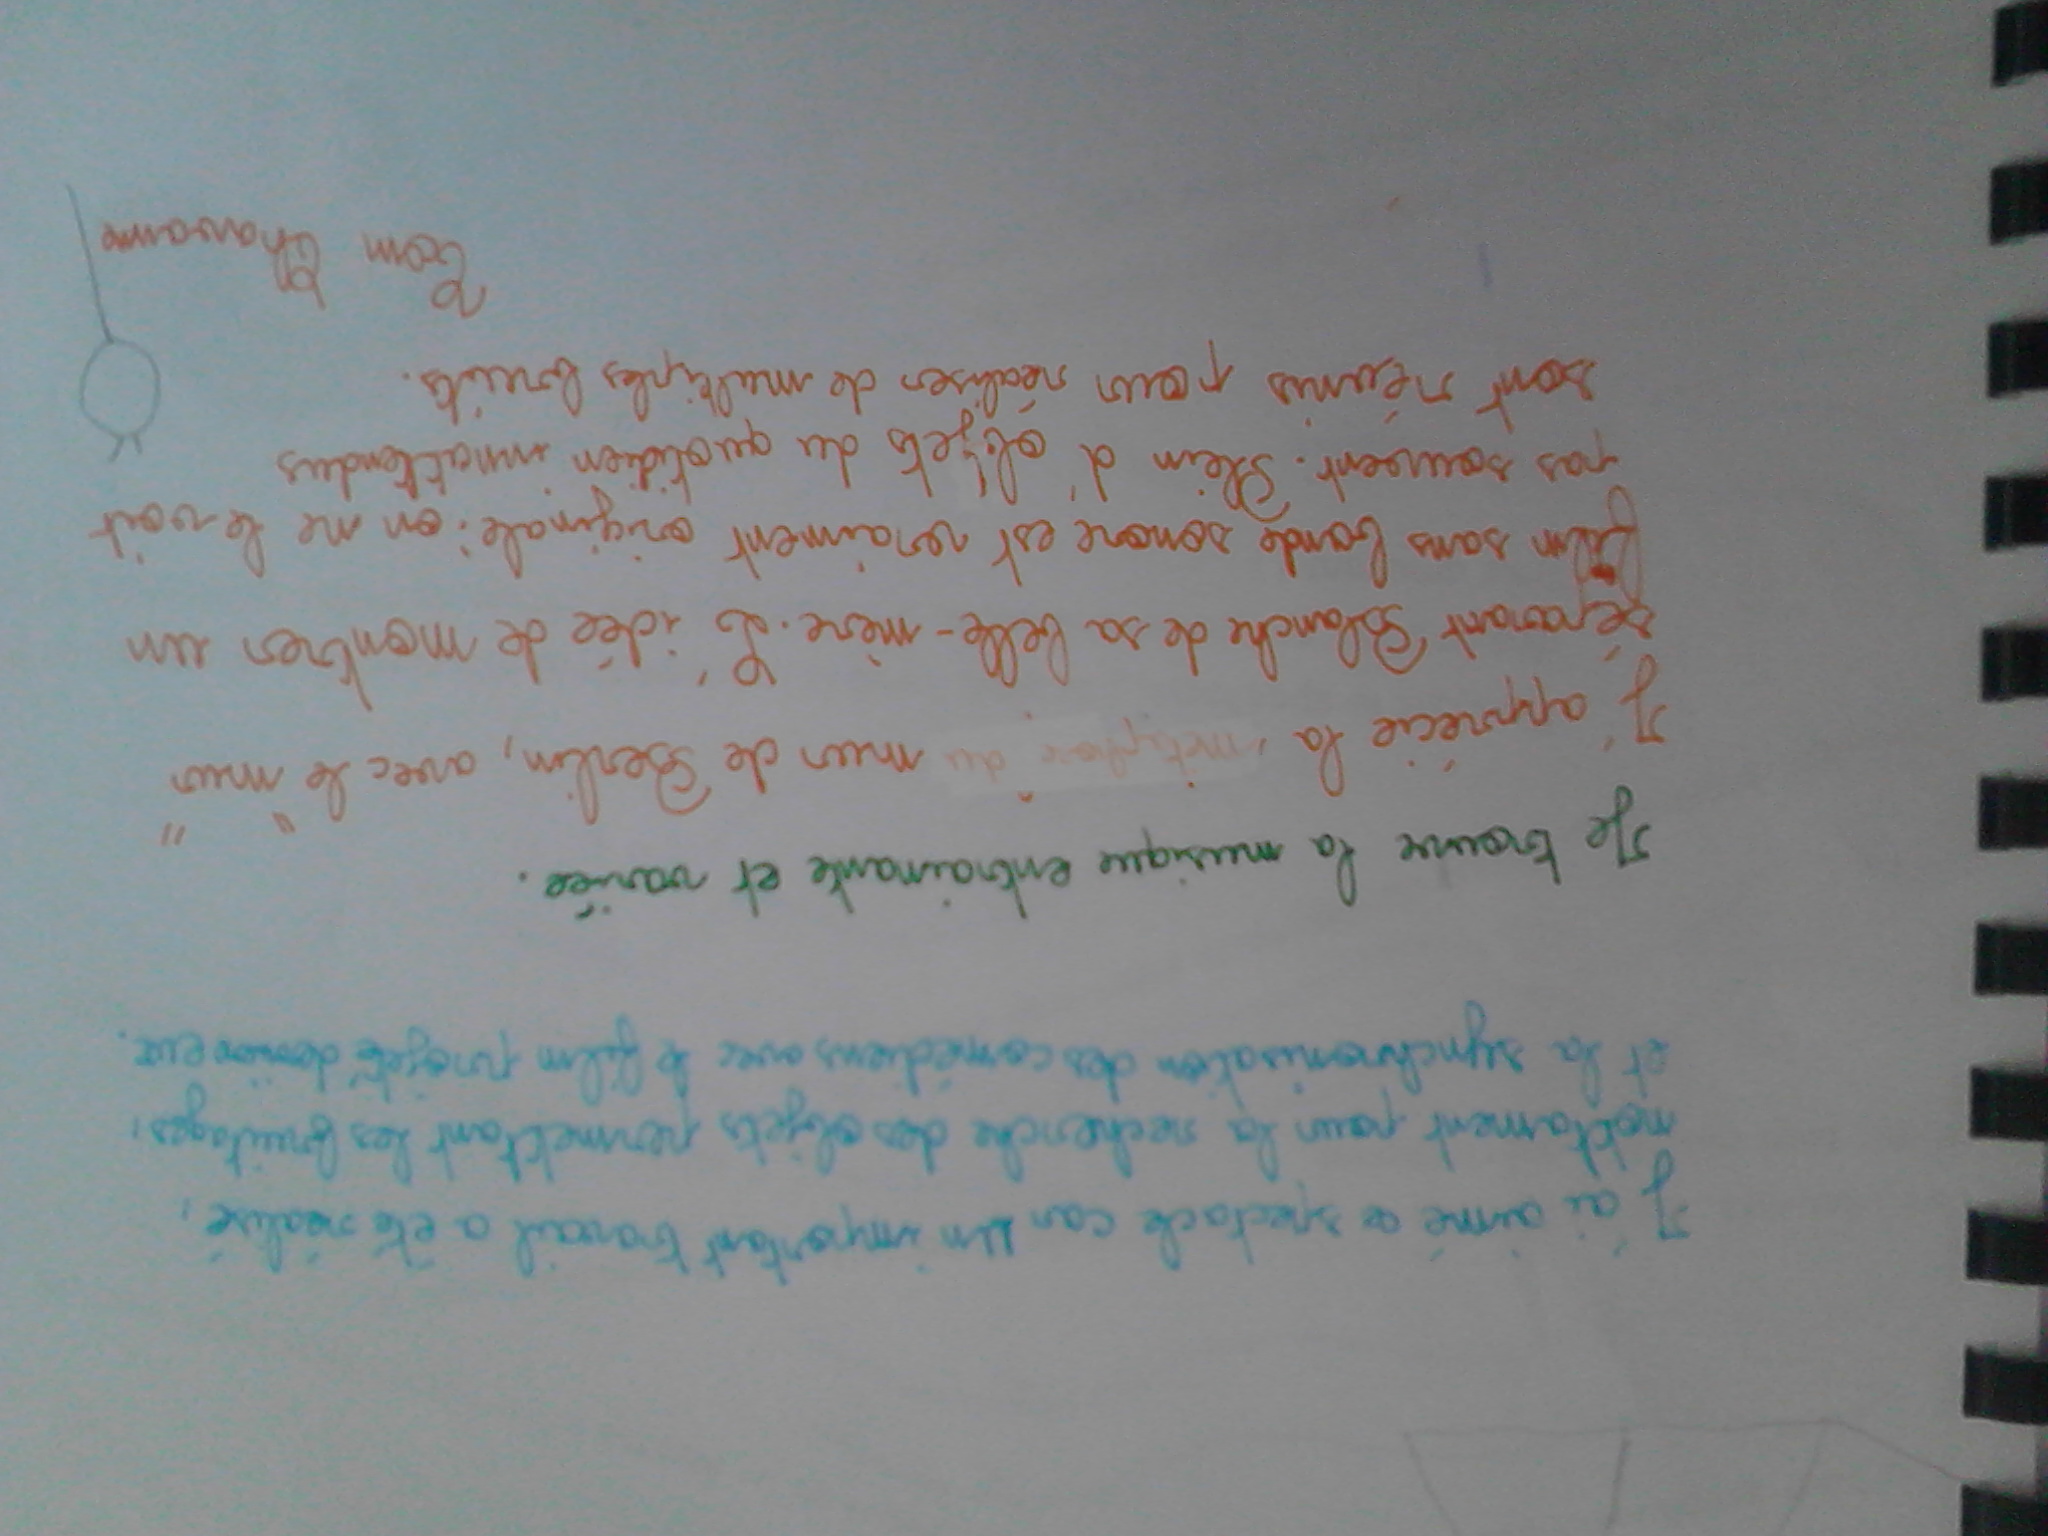 J'ai aimé ce spectacle car un important travail a été réalisé,
nottament pour la recherche des objets permettant les bruitages,
et la synchronisation des comédiens avec le film projeté derrière eux.
Je trouve la musique entrainante et variée.
J'apprécie la "métaphore du" mur de Berlin, avec le "mur"
séparant Blanche de sa belle-mère. L'idée de montrer un
film sans bande sonore est vraiment originale : on ne le voit
pas souvent. Plein d'objets du quotidien innattendus
sont réunis pour réaliser de multiples bruits.
Tom